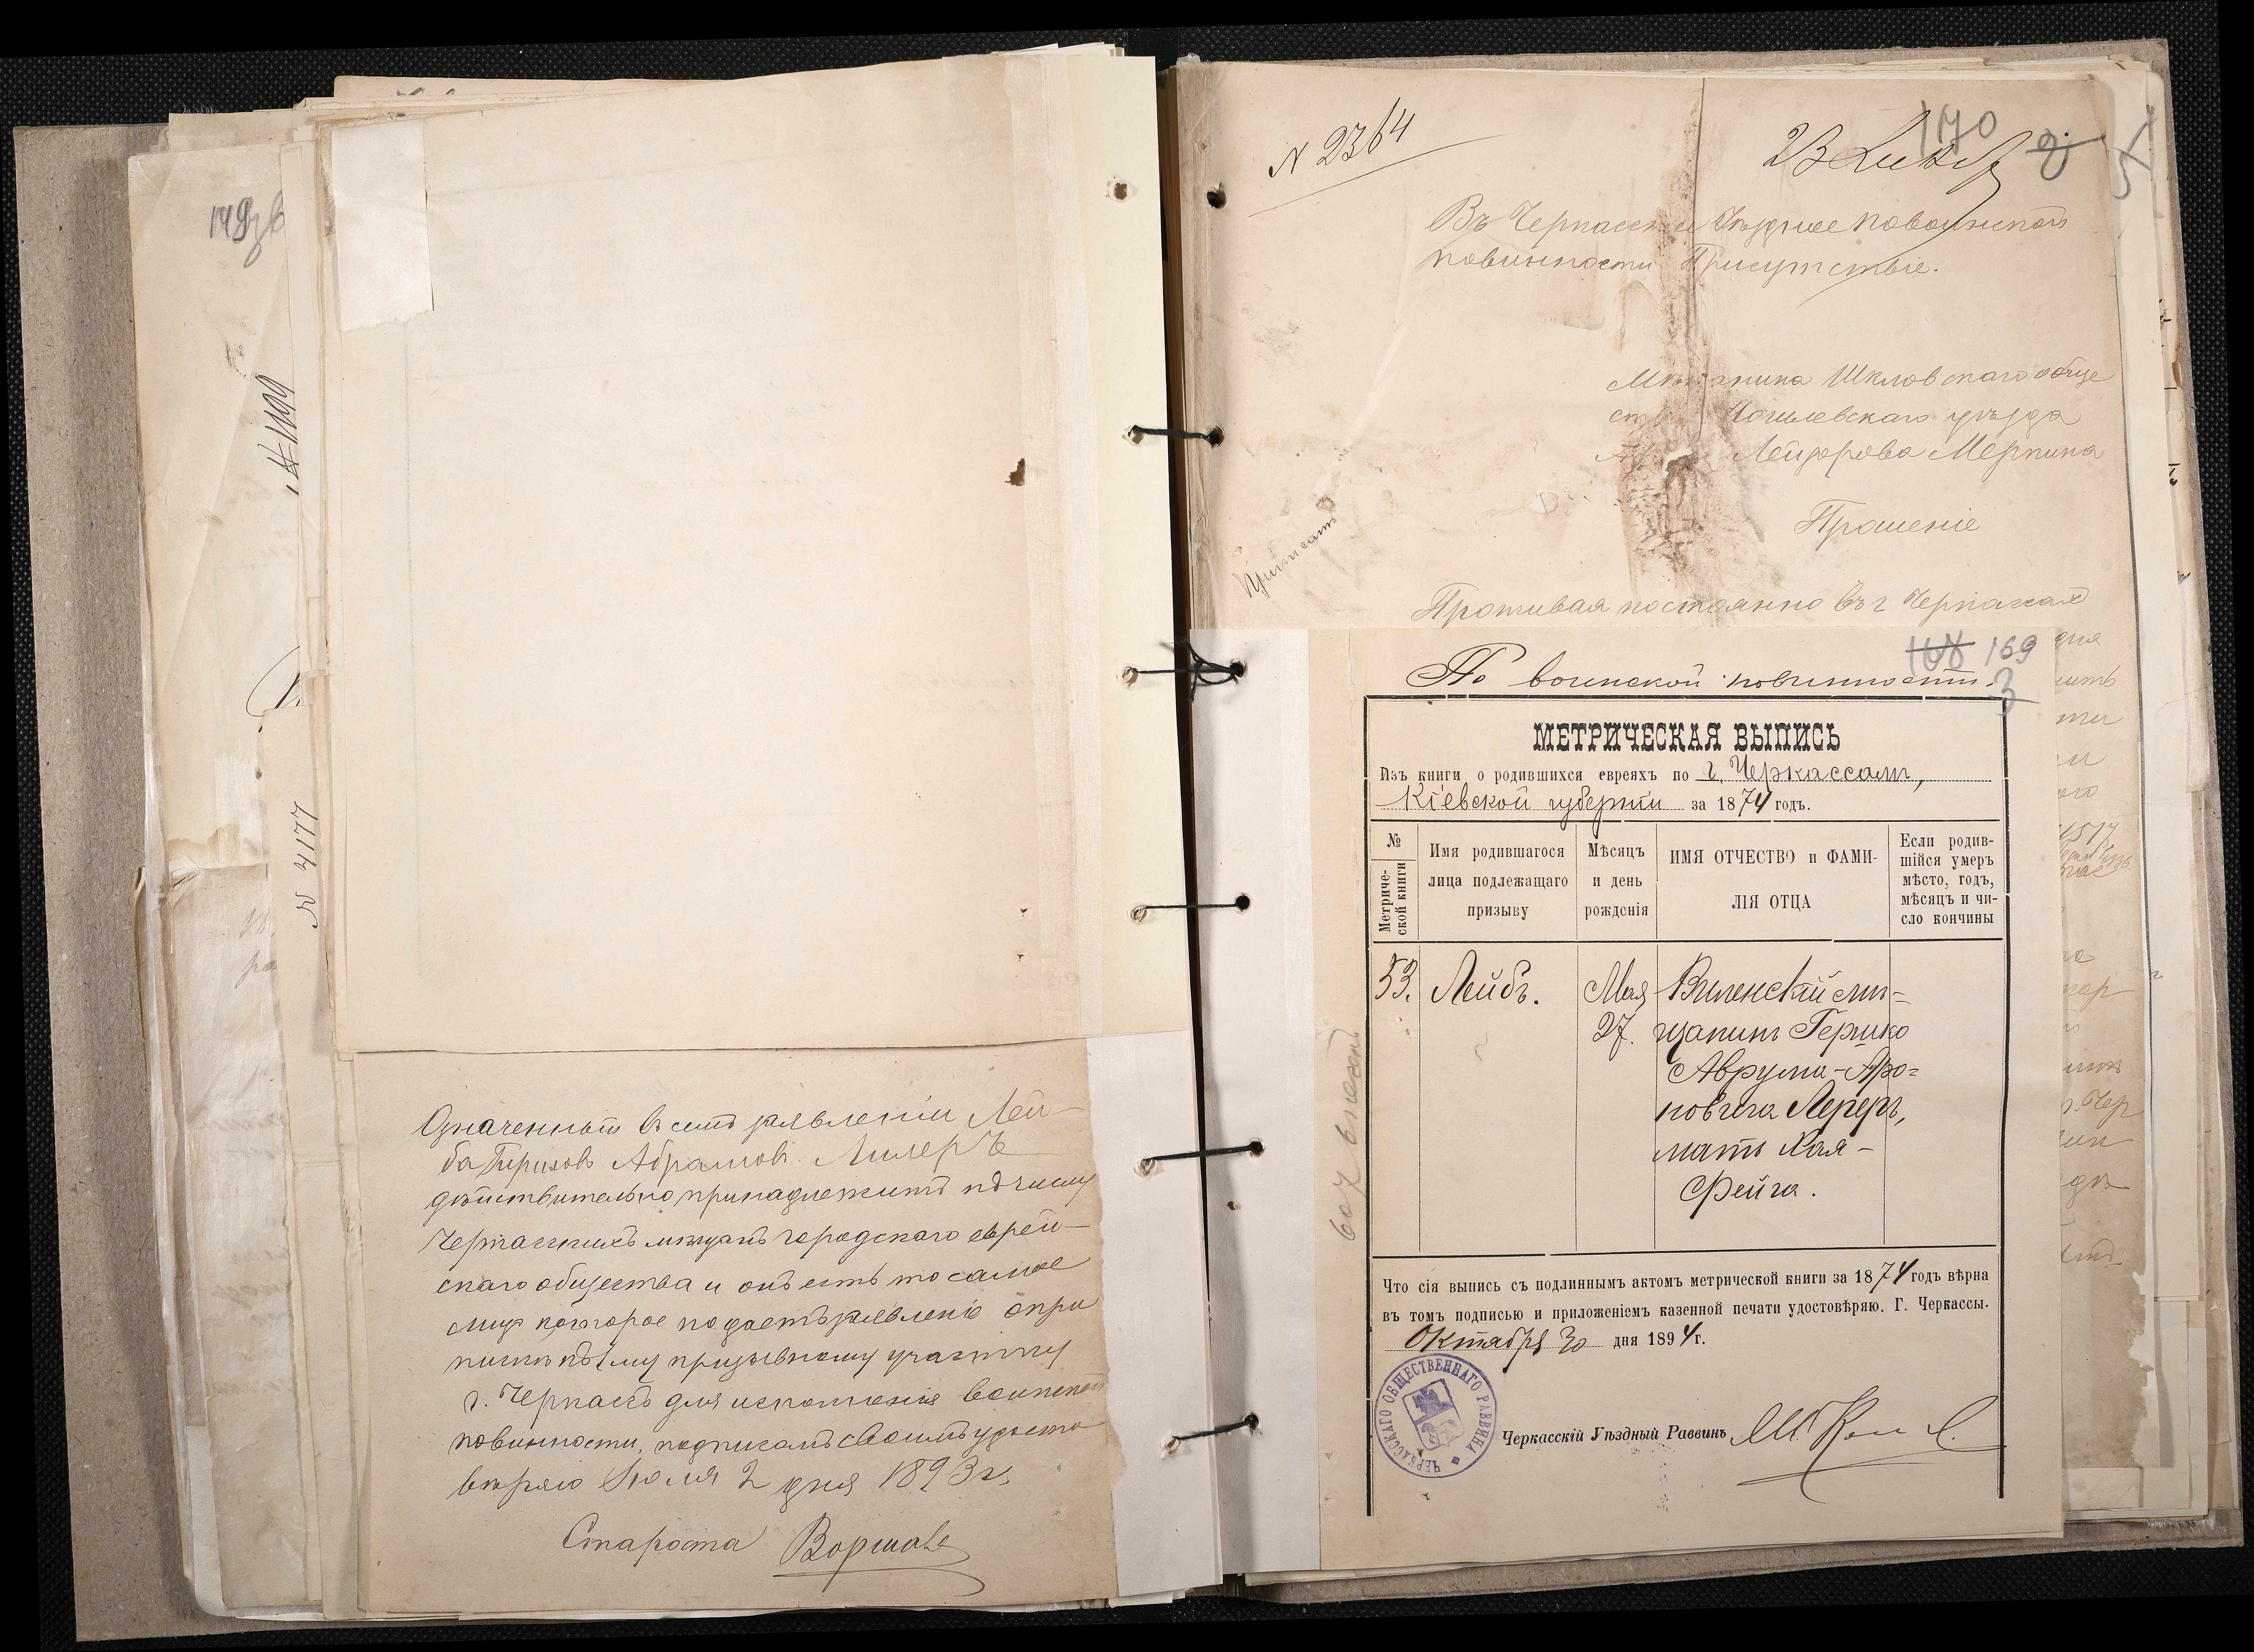 149
N 1199
N 4177
Означенный въ семъ заявленіи Лей-
ба Гершовъ Абрамовъ Лилеръ
дѣйствительно принадлежитъ къ числу
Черкасскихъ мѣщанъ городского еврей-
скаго общества и онъ есть то самое
лицо которое подаетъ заявленіе о при
пискѣ къ 1му призывному участку
г. Черкасъ для исполненія воинской
повинности, подписомъ своимъ удосто
вѣряю Іюля 2 дня 1893 г.
Староста
N 2364
170
23
Въ Черкасское Уѣздное по воинской
повинности Присутствіе.
Мѣщанина Шкловскаго обще
ст Могилевскаго уѣзда
Лейзерова Меркина
Прошеніе
Приписать
Проживая постоянно въ г Черкасах
169
3
По воинской повинности.
МЕТРИЧЕСКАЯ ВЫПИСЬ
Изъ книги о родившихся евреяхъ по г. Черкассамъ,
Кіевской губерніи за 1874 годъ.
№ Метриче-
ской книги
Имя родившагося
лица подлежащаго
призыву
Мѣсяцъ
и день
рожденія
ИМЯ ОТЧЕСТВО и ФАМИ-
ЛІЯ ОТЦА
Если родив-
шійся умеръ
мѣсто, годъ,
мѣсяцъ и чи-
сло кончины
53. Лейбъ. Мая Виленскій мѣ-
27. щанинъ Гершко
Аврумъ-Аро-
новичъ Лереръ,
мать Хая-
Фейга.
Что сія выпись съ подлиннымъ актомъ метрической книги за 1874 годъ вѣрна
въ томъ подписью и приложеніемъ казенной печати удостовѣряю. Г. Черкассы.
Октября 30 дня 1894 г.
ЧЕРКАССКАГО ОБЩЕСТВЕННАГО РАВВИНА
Черкасскій Уѣздный Раввинъ